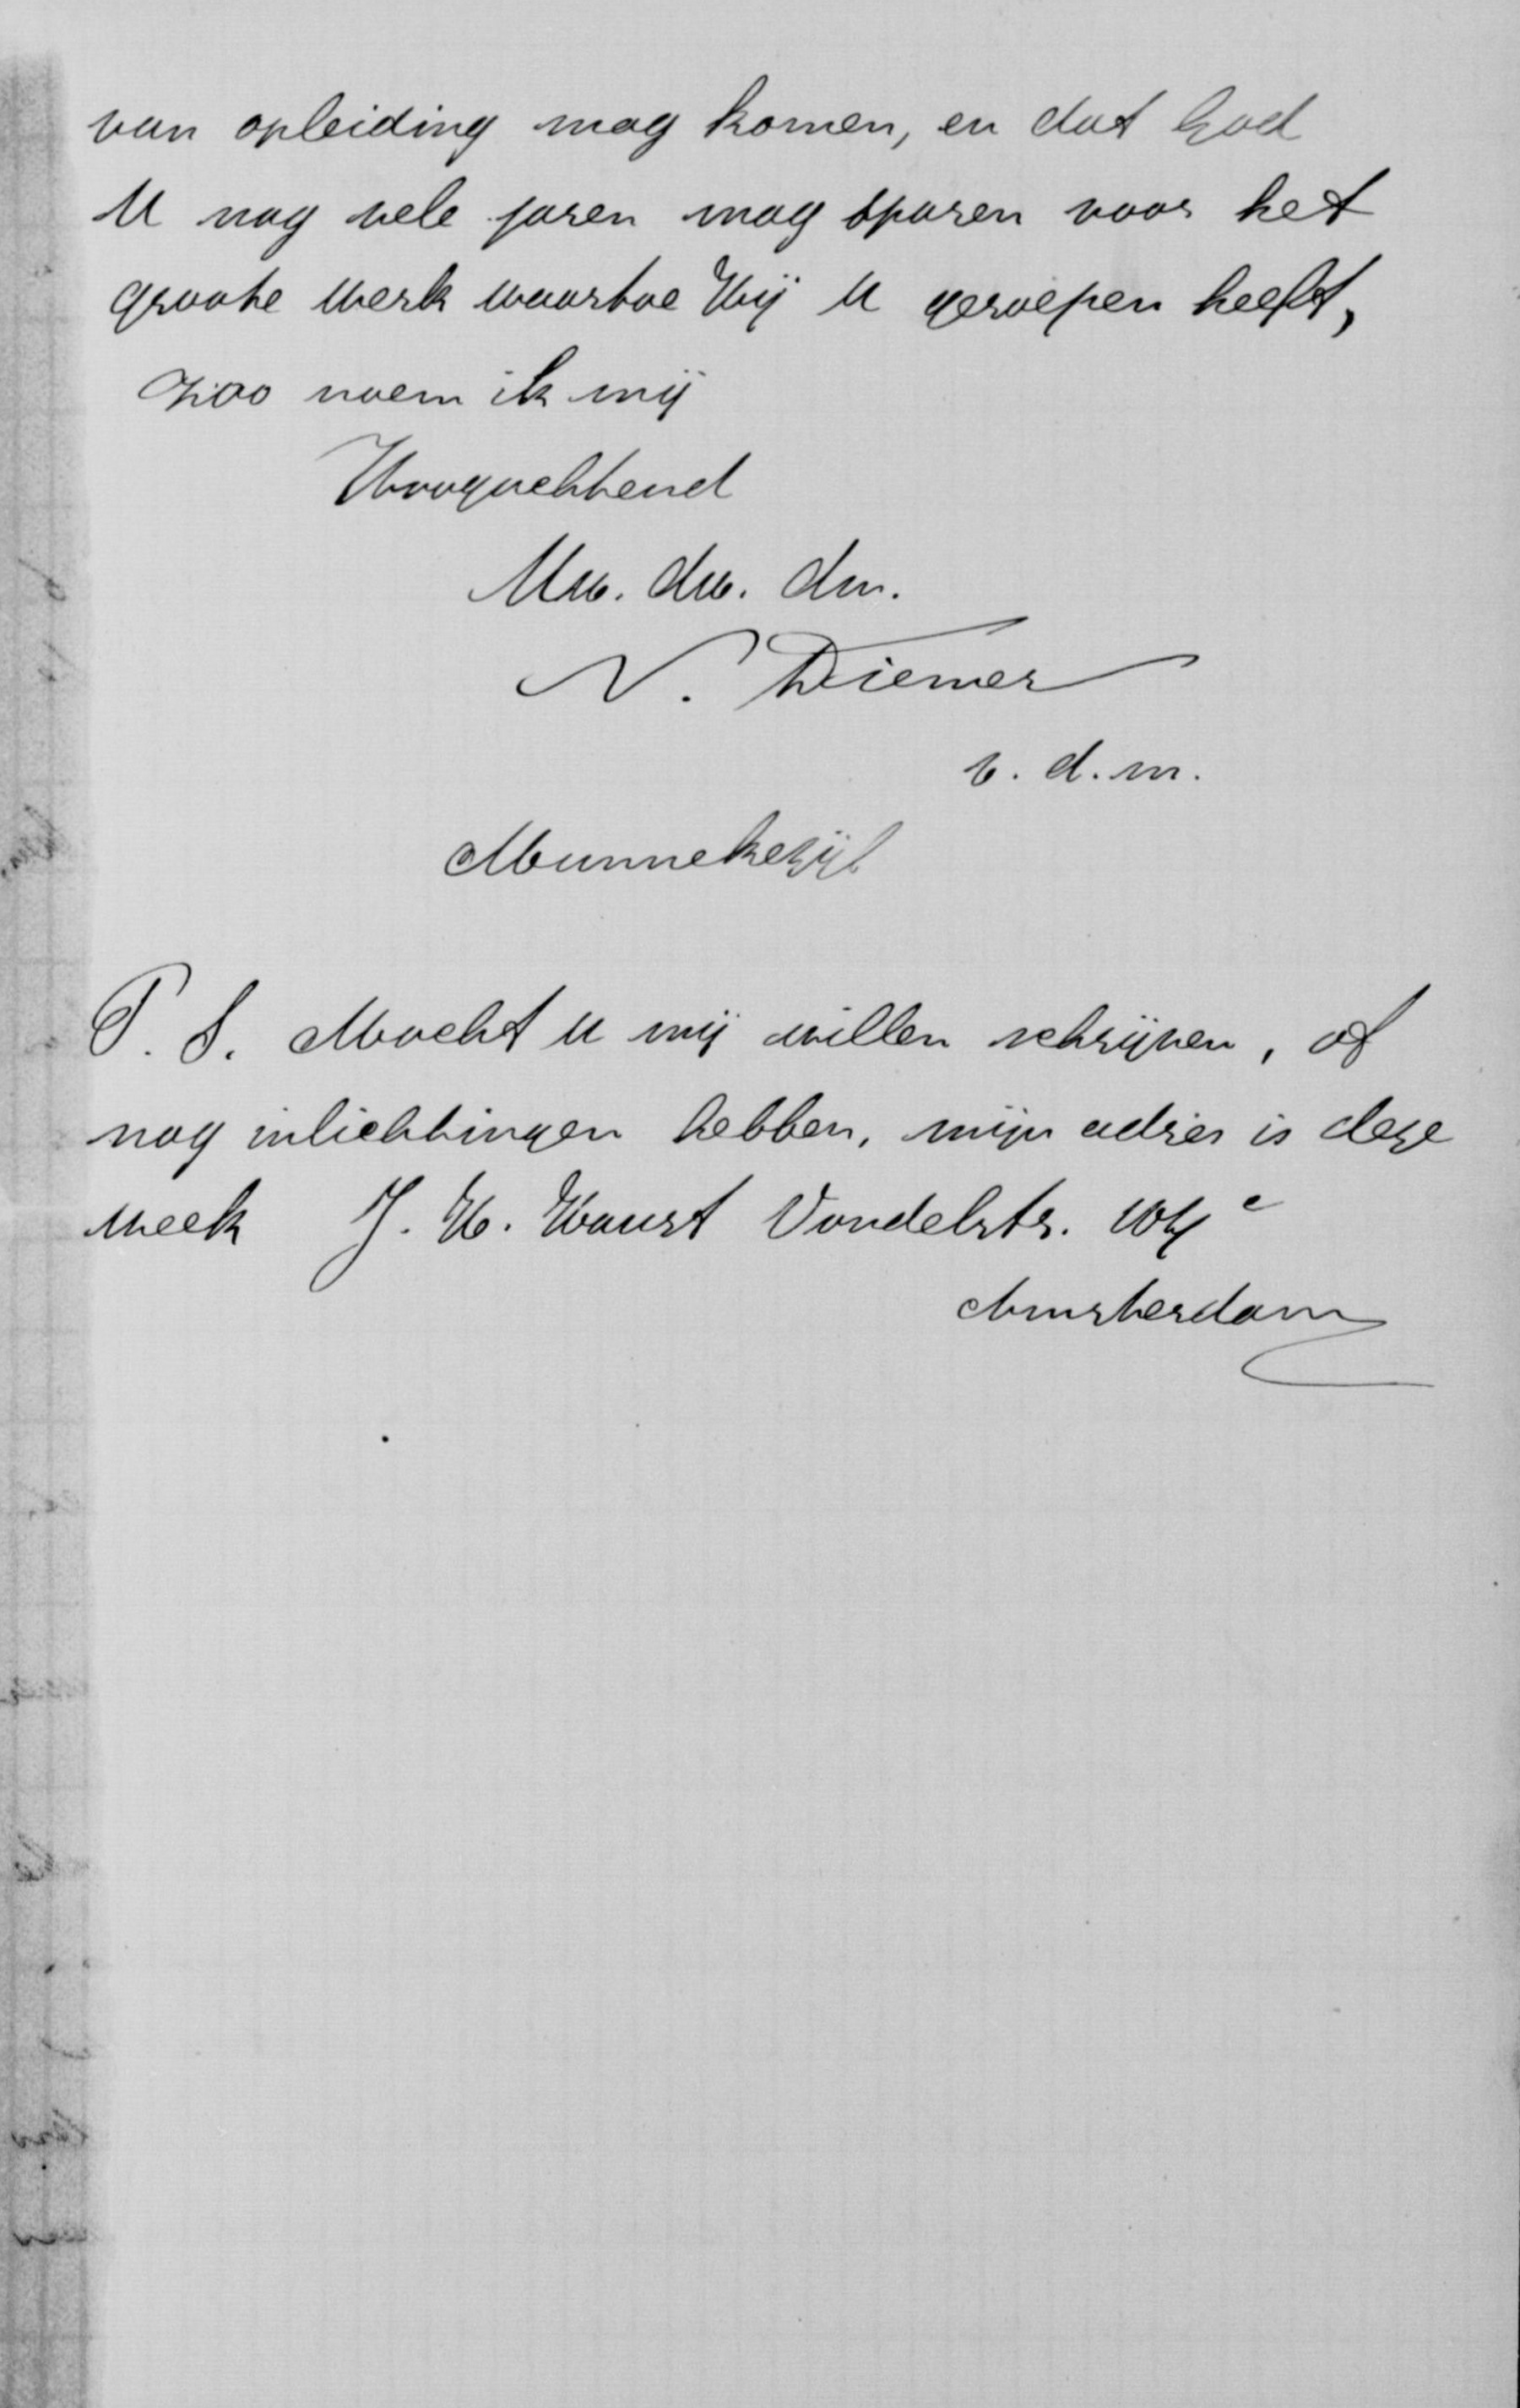 van opleiding mag komen, en dat God
U nog vele jaren mag sparen voor het
groote werk waartoe Hij U geroepen heeft,
zoo noem ik mij
Hoogachtend
Uw. dw. dn.
N. Diemer
v. d. m.
Munnekezijl
P. S. Mocht U mij willen schrijven, of
nog inlichtingen hebben, mijn adres is deze
week J. H. Vondelstr.
Amsterdam